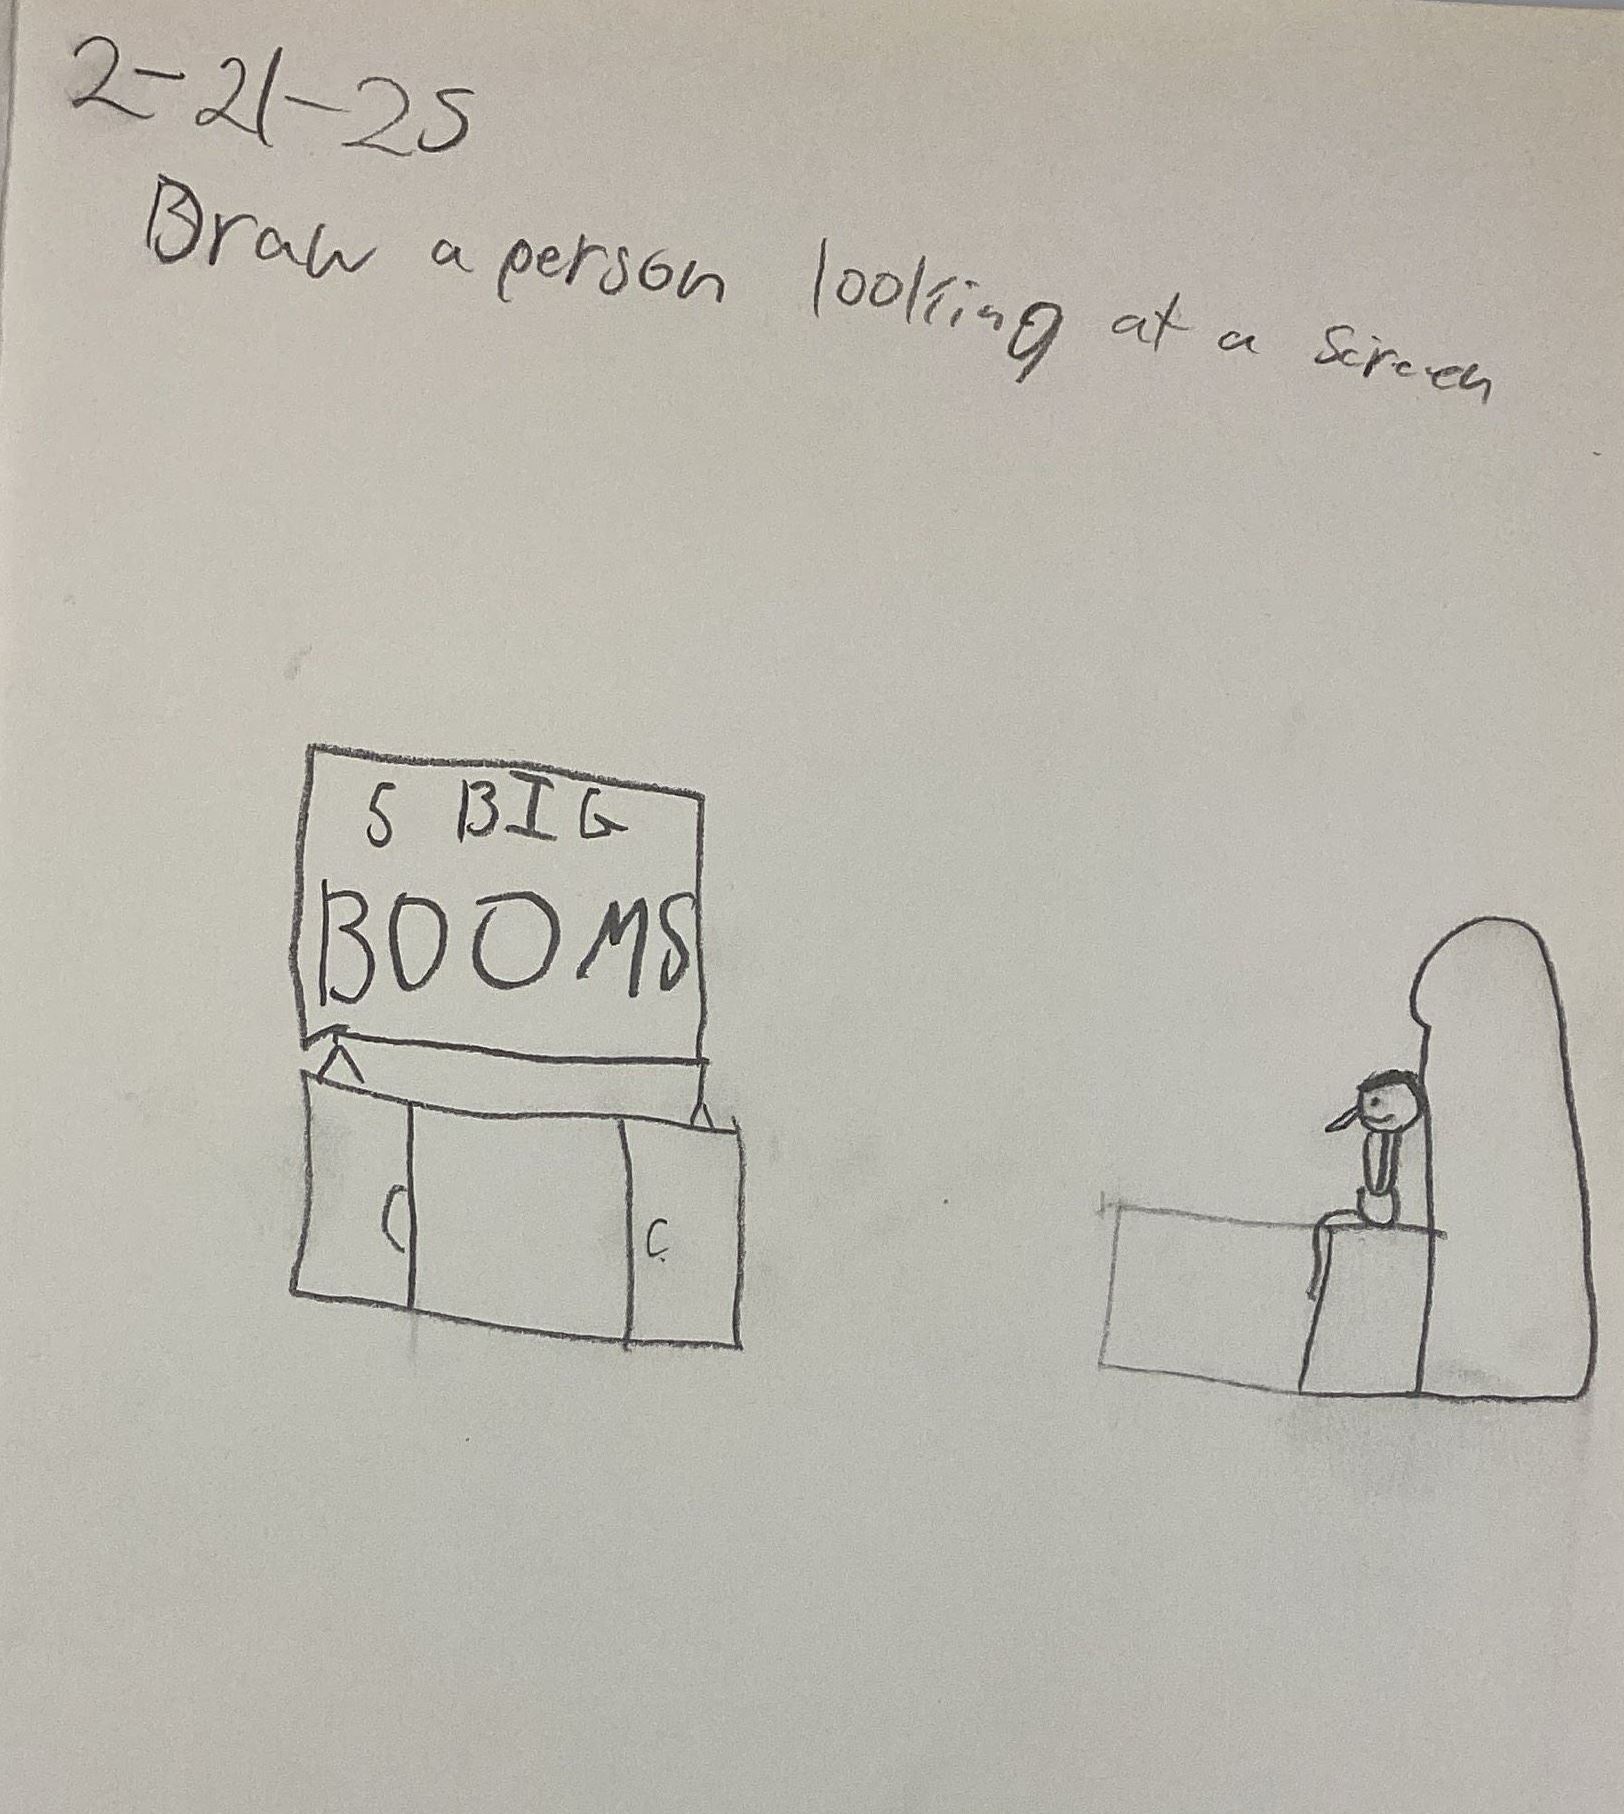 2-21-25
Draw a person looking at a screen
5 BIG
BOOMS